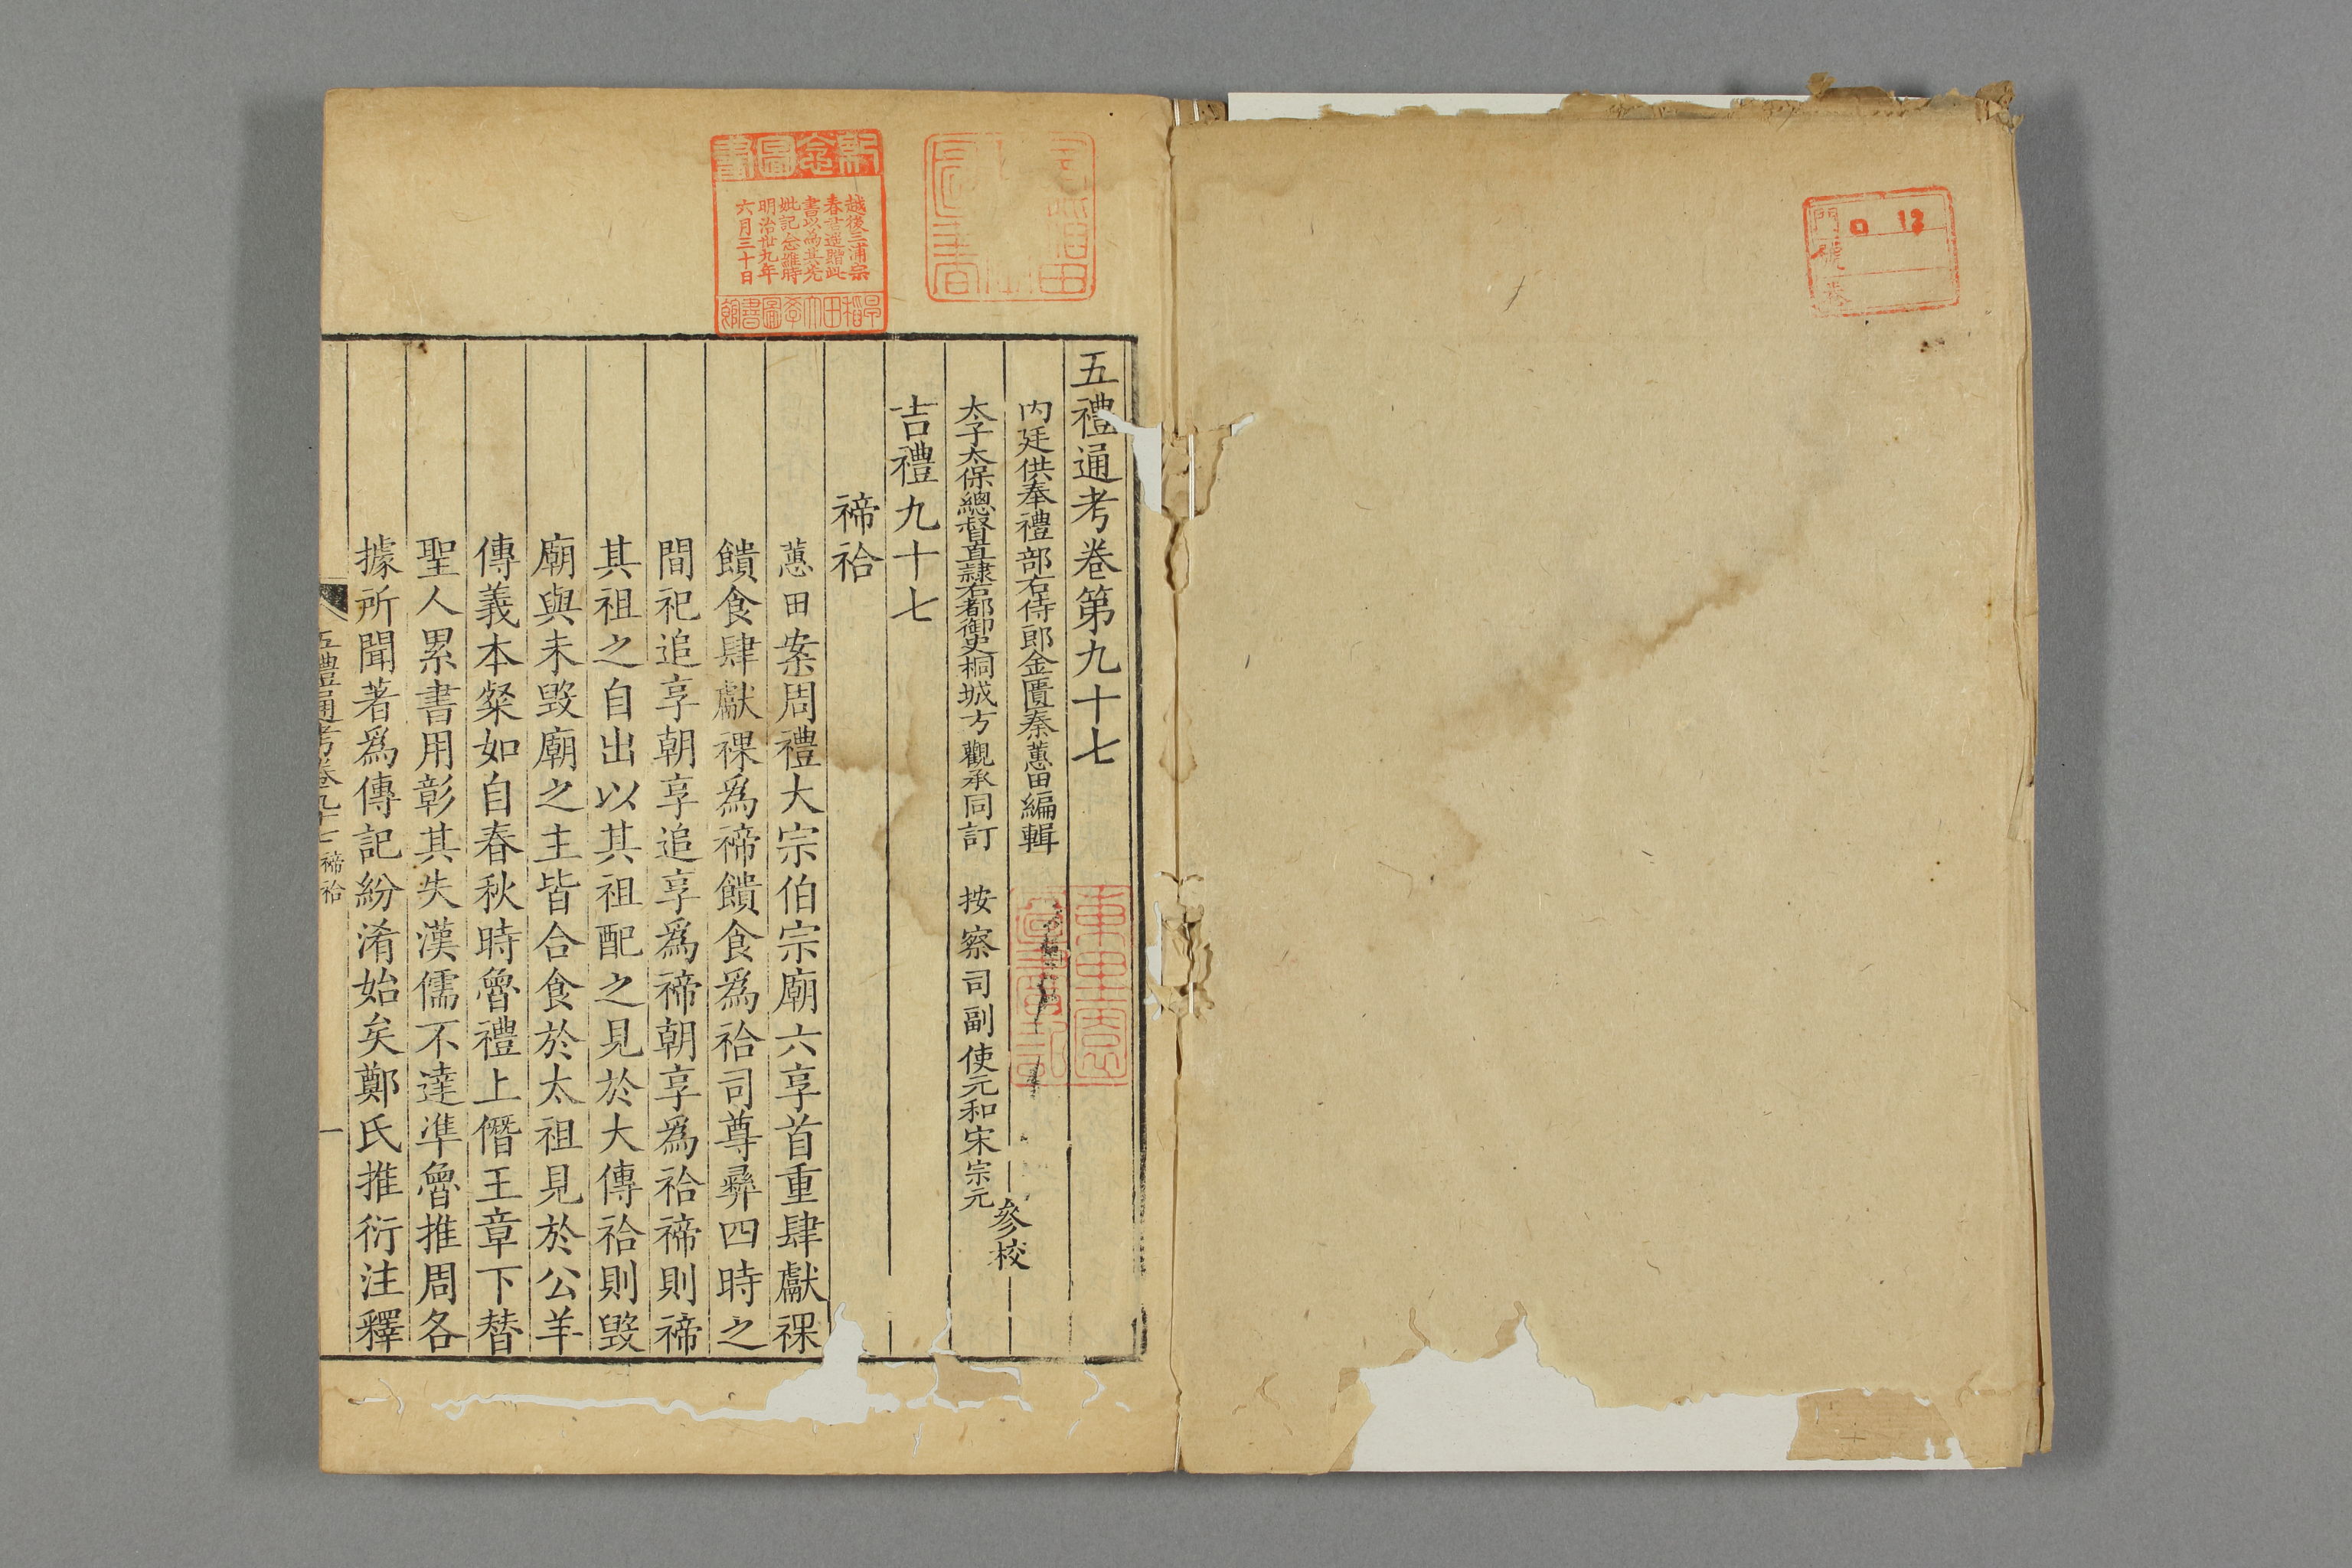 五禮通考卷第九十七
内廷供奉禮部右侍郎金匱秦蕙田編輯
太子太保總督直隸右都御史桐城方觀承同訂
按察司副使元和宋宗元
參校
吉禮九十七
禘祫
蕙田案周禮大宗伯宗廟六享首重肆獻祼
饋食肆獻祼爲禘饋食爲祫司尊彝四時之
間祀追享朝享追享爲禘朝享爲祫禘則禘
其祖之自出以其祖配之見於大傳祫則毀
廟與未毀廟之主皆合食於太祖見於公羊
傳義本粲如自春秋時魯禮上僭王章下替
聖人累書用彰其失漢儒不達準魯推周各
據所聞著爲傳記紛淆始矣鄭氏推衍注釋
五禮通考卷九十七 禘祫
一
越後三浦宗
春書遥贈此
書以為其先
妣記念維時
明治卅九年
六月三十日
早稻田大學圖書館
門
號
卷
口 12